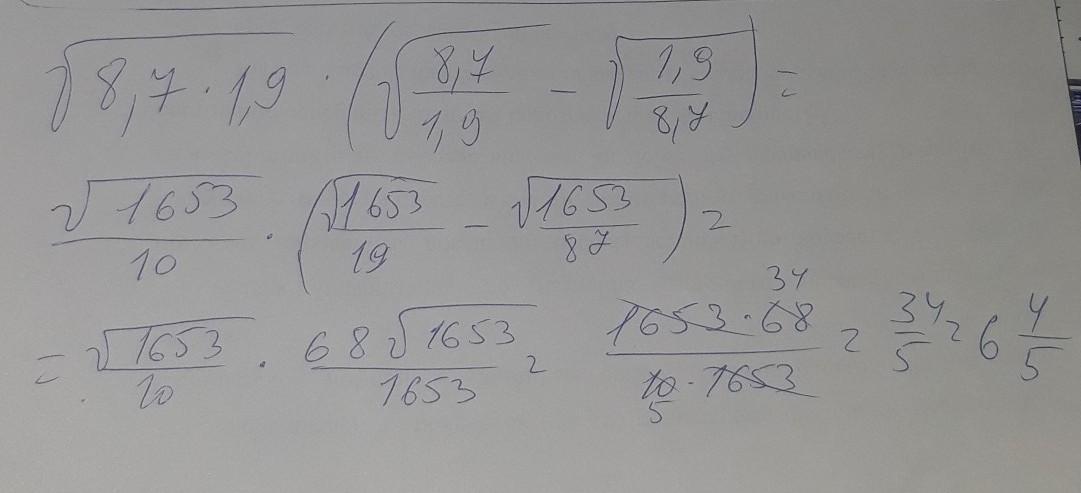 √(8,7 · 1,9) · (√(8,7/1,9) − √(1,9/8,7)) =
√1653/10 · (√1653/19 − √1653/87) =
= √1653/10 · 68√1653/1653 = 1653 · 68 34/10 5 · 1653 = 34/5 = 6 4/5